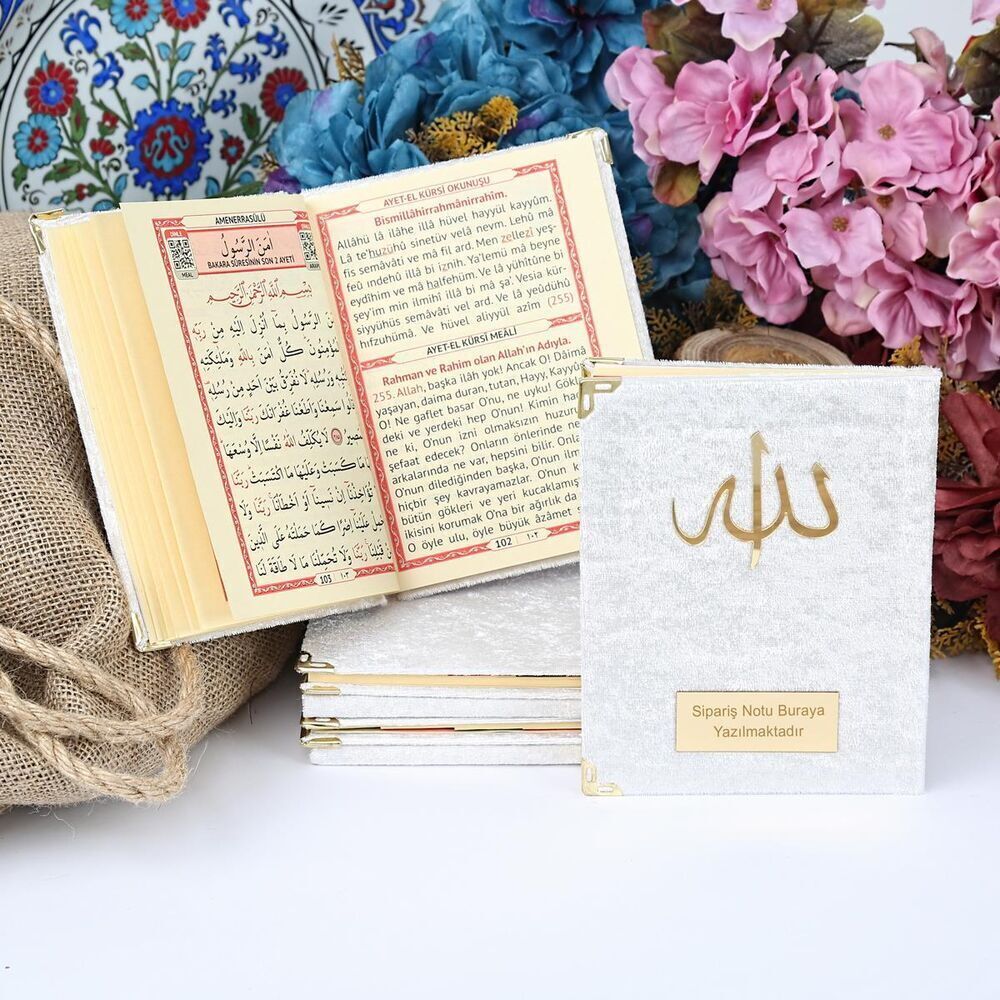 AMENERRASÛLÜ
DİNLE
MEAL
اٰمَنَ الرَّسُولُ
BAKARA SÛRESİNİN SON 2 AYETİ
بِسْمِ اللّٰهِ الرَّحْمٰنِ الرَّح۪يمِ
اٰمَنَ الرَّسُولُ بِمَٓا اُنْزِلَ اِلَيْهِ مِنْ رَبِّه۪
وَالْمُؤْمِنُونَ كُلٌّ اٰمَنَ بِاللّٰهِ وَمَلٰٓئِكَتِه۪
وَرُسُلِه۪ لَا نُفَرِّقُ بَيْنَ اَحَدٍ مِنْ رُسُلِه۪
سَمِعْنَا وَاَطَعْنَا غُفْرَانَكَ رَبَّنَا وَاِلَيْكَ
لَا يُكَلِّفُ اللّٰهُ نَفْسًا اِلَّا وُسْعَهَا
مَا كَسَبَتْ وَعَلَيْهَا مَا اكْتَسَبَتْ رَبَّنَا
تُؤَاخِذْنَٓا اِنْ نَس۪ينَٓا اَوْ اَخْطَأْنَا رَبَّنَا وَلَا
عَلَيْنَٓا اِصْرًا كَمَا حَمَلْتَهُ عَلَى الَّذ۪ينَ
قَبْلِنَا رَبَّنَا وَلَا تُحَمِّلْنَا مَا لَا طَاقَةَ لَنَا
103 ١٠٣
AYET-EL KÜRSİ OKUNUŞU
Bismillâhirrahmânirrahîm.
Allâhü lâ ilâhe illâ hüvel hayyül kayyûm.
Lâ te'huzühû sinetüv velâ nevm. Lehû mâ
fis semâvâti ve mâ fil ard. Men zellezî yeş-
feû ındehû illâ bi iznih. Ya'lemü mâ beyne
eydîhim ve mâ halfehüm. Ve lâ yühîtûne bi
şey'im min ilmihî illâ bi mâ şa'. Vesia kür-
siyyühüs semâvâti vel ard. Ve lâ yeûdühû
hıfzuhümâ. Ve hüvel aliyyül azîm (255)
AYET-EL KÜRSİ MEÂLİ
Rahman ve Rahim olan Allah'ın Adıyla.
255. Allah, başka ilâh yok! Ancak O! Dâima
yaşayan, daima duran, tutan, Hayy, Kayyû
O! Ne gaflet basar O'nu, ne uyku! Gökl
deki ve yerdeki hep O'nun! Kimin had
ne ki, O'nun izni olmaksızın huzuru
şefaat edecek? Onların önlerinde ne
arkalarında ne var, hepsini bilir. Onla
O'nun dilediğinden başka, O'nun ilm
hiçbir şey kavrayamazlar. O'nun
bütün gökleri ve yeri kucaklamış
ikisini korumak O'na bir ağırlık da
O öyle ulu, öyle büyük âzâmet s
102 ١٠٢
الله
Sipariş Notu Buraya
Yazılmaktadır